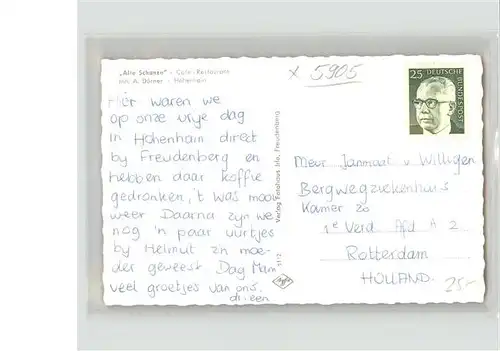 „Alte Schanze" - Café-Restaurant
Inh. A. Dörner - Hohenhain
x 5905
25 DEUTSCHE
BUNDESPOST
Hier waren we
op onze vrye dag
in Hohenhain direct
by Freudenberg en
hebben daar koffie
gedronken, 't was mooi
weer Daarna zyn we
nog 'n paar uurtjes
by Helmut z'n moe-
der geweest Dag Mam
veel groetjes van ons.
drieen
Verlag Fotohaus Jrle, Freudenberg
Agfa
Mevr Janmaat v Willigen
Bergwegziekenhuis
Kamer 20
1e Verd Afd A 2
Rotterdam
HOLLAND.
25-